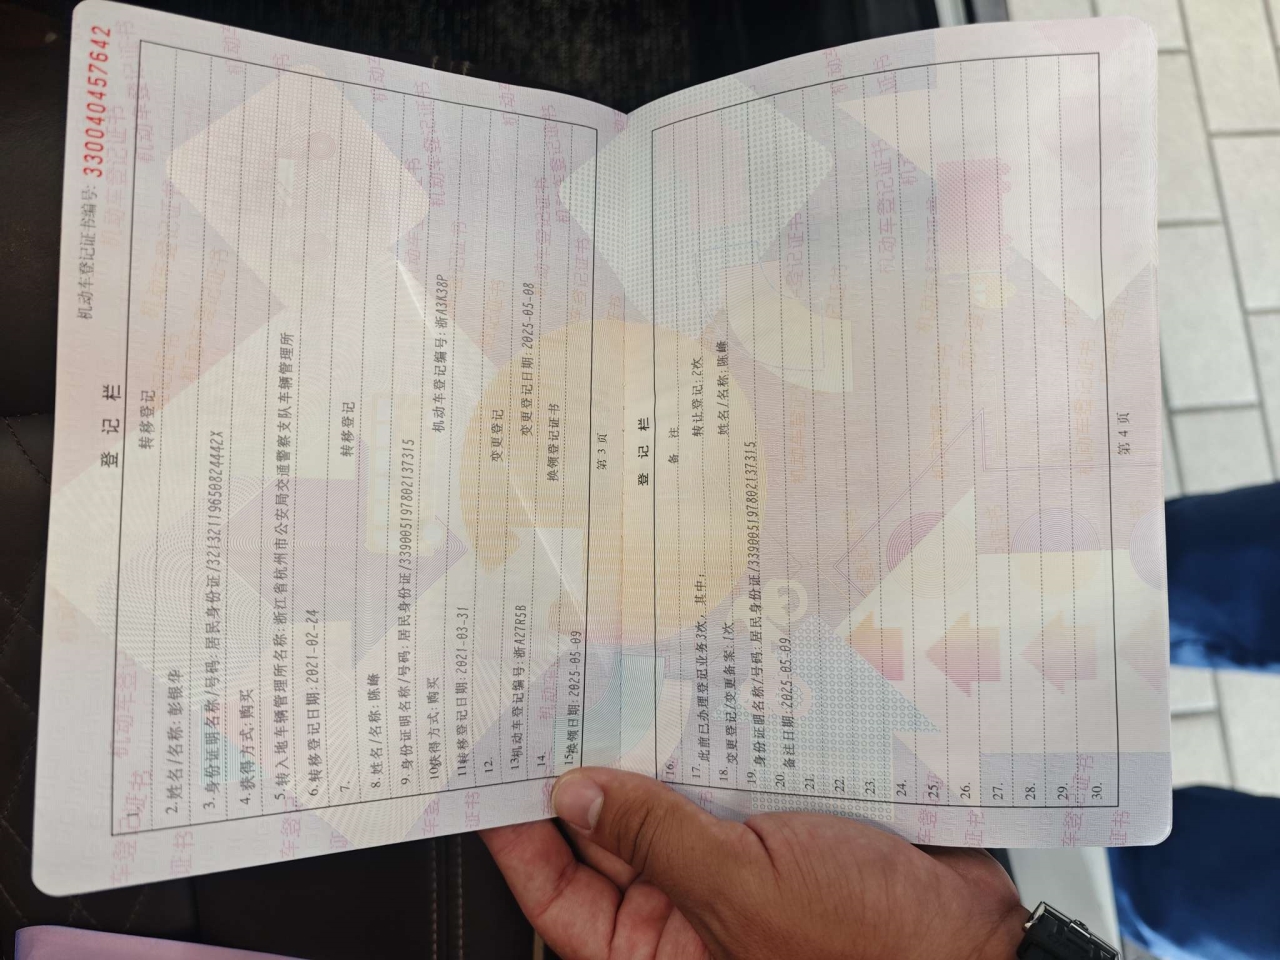 机动车登记证书编号: 330040457642
登 记 栏
1. 转移登记
2. 姓名/名称: 彭银华
3. 身份证明名称/号码: 居民身份证/32132119650824442X
4. 获得方式: 购买
5. 转入地车辆管理所名称: 浙江省杭州市公安局交通警察支队车辆管理所
6. 转移登记日期: 2021-02-24
7. 转移登记
8. 姓名/名称: 陈峰
9. 身份证明名称/号码: 居民身份证/339005197802137315
10. 获得方式: 购买 机动车登记编号: 浙A3K38P
11. 转移登记日期: 2021-03-31
12. 变更登记
13. 机动车登记编号: 浙A27R5B 变更登记日期: 2025-05-08
14. 换领登记证书
15. 换领日期: 2025-05-09
第 3 页
登 记 栏
16. 备 注
17. 此前已办理登记业务3次, 其中: 转让登记: 2次
18. 变更登记/变更备案: 1次 姓名/名称: 陈峰
19. 身份证明名称/号码: 居民身份证/339005197802137315
20. 备注日期: 2025-05-09
21.
22.
23.
24.
25.
26.
27.
28.
29.
30.
第 4 页